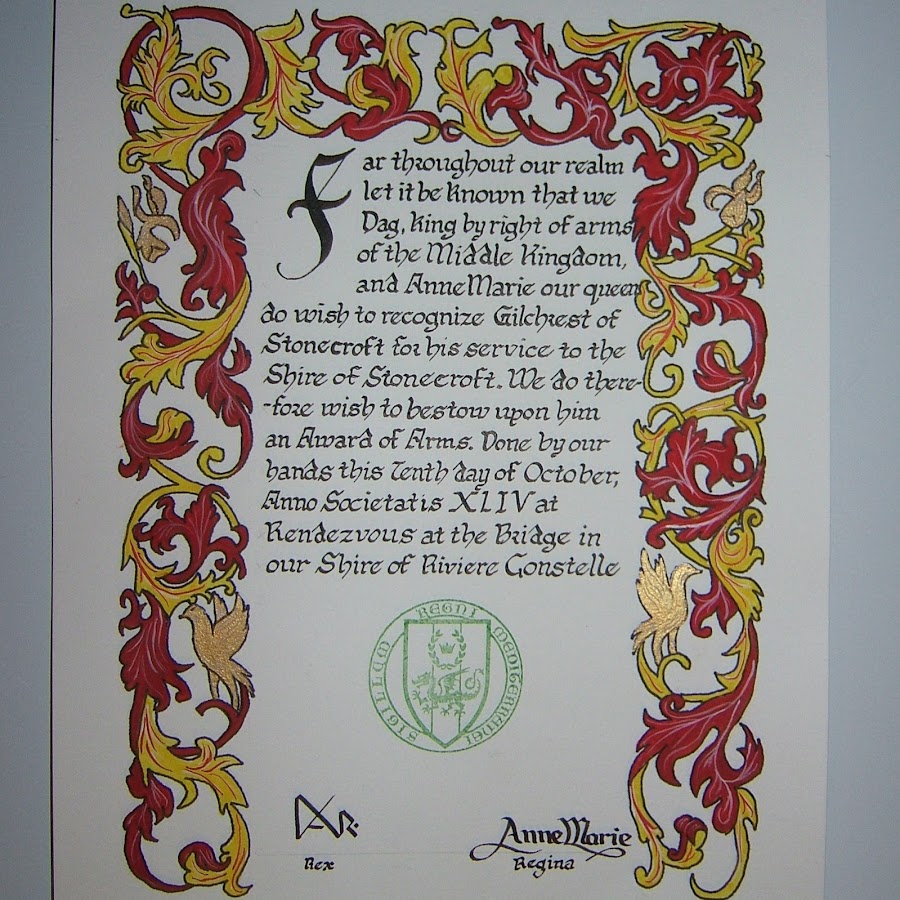 Far throughout our realm
let it be known that we
Dag, king by right of arms
of the Middle Kingdom,
and AnneMarie our queen
do wish to recognize Gilchrest of
Stonecroft for his service to the
Shire of Stonecroft. We do there-
-fore wish to bestow upon him
an Award of Arms. Done by our
hands this Tenth day of October,
Anno Societatis XLIV at
Rendezvous at the Bridge in
our Shire of Riviere Constelle
SIGILLEM REGNI MEDITERRANEI
Rex
AnneMarie
Regina